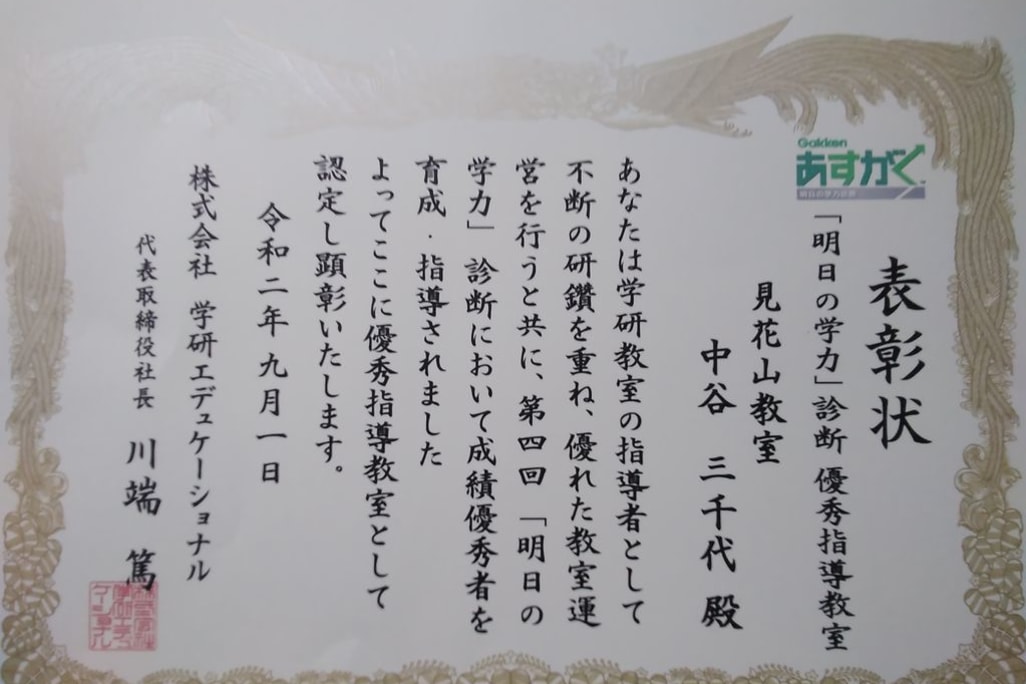 Gakken
あすがく
表彰状
「明日の学力」診断 優秀指導教室
見花山教室
中谷 三千代 殿
あなたは学研教室の指導者として
不断の研鑽を重ね、優れた教室運
営を行うと共に、第四回 「明日の
学力」 診断において成績優秀者を
育成・指導されました
よってここに優秀指導教室として
認定し顕彰いたします。
令和二年九月一日
株式会社 学研エデュケーショナル
代表取締役社長 川端 篤